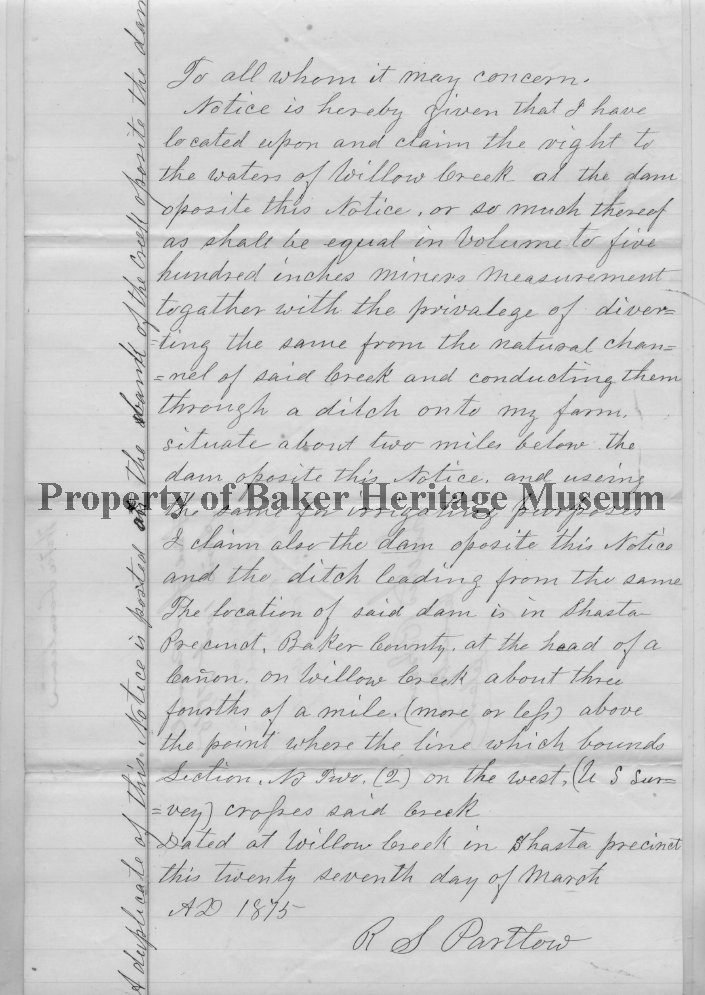 To all whom it may concern.
Notice is hereby given that I have
located upon and claim the right to
the waters of Willow Creek at the dam
oposite this Notice, or so much thereof
as shall be equal in Volume to five
hundred inches miners measurement
togather with the privalege of diver=
=ting the same from the natural chan=
=nel of said Creek and conducting them
through a ditch onto my farm,
situate about two miles below the
dam oposite this Notice, and useing
Property of Baker Heritage Museum
the same for irrigating purposes
I claim also the dam oposite this Notice
and the ditch leading from the same
The location of said dam is in Shasta
Precinct, Baker County, at the head of a
Cañon, on Willow Creek about three
fourths of a mile, (more or less) above
the point where the line which bounds
Section, No Two, (2) on the west, (U S Sur=
=vey) crosses said Creek
Dated at Willow Creek in Shasta precinct
this twenty seventh day of March
AD 1875
R S Partlow
A duplicate of this Notice is posted on the bank of the Creek oposite the dam